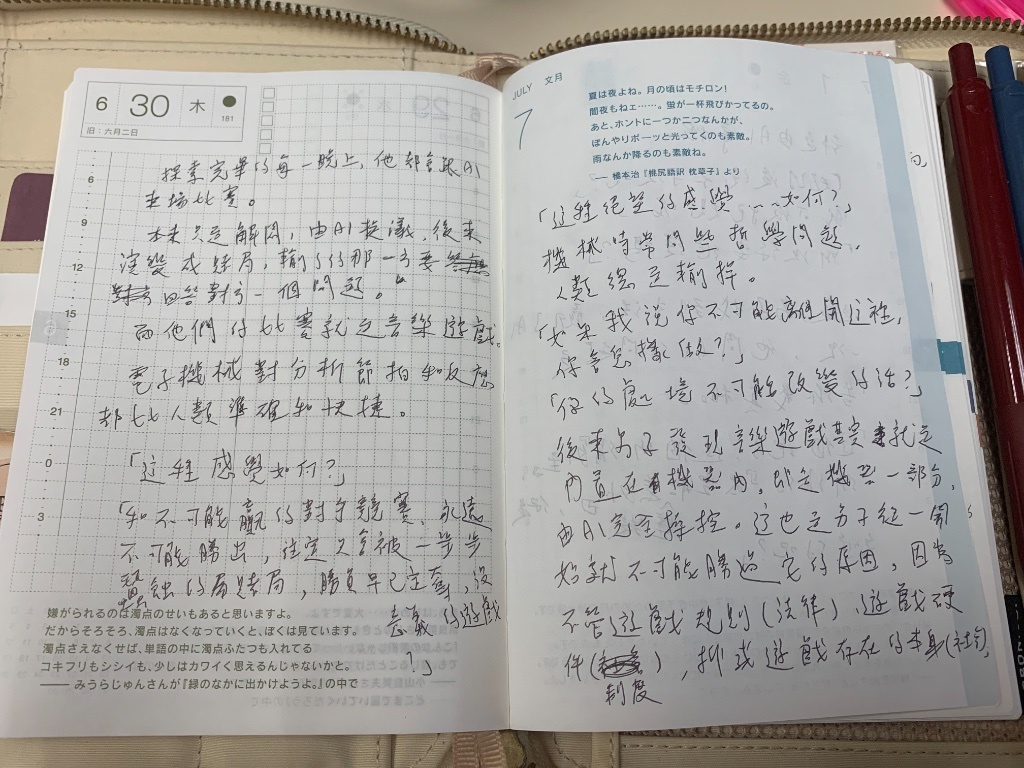 6
30
木
181
旧：六月二日
6
9
12
15
18
21
0
3
探索完畢的每一晚上，他都會跟AI
來場比賽。
本來只是解悶，由AI提議，後來
演變成賭局，輸了的那一方要
回答對方一個問題。
而他們的比賽就是音樂遊戲。
電子機械對分析節拍和反應
都比人類準確和快捷。
「這種感覺如何？」
「和不可能贏的對手競賽，永遠
不可能勝出，註定只會被一步步
蠶蝕的局賭局，勝負早已定奪，沒
意義的遊戲
？」
嫌がられるのは濁点のせいもあると思いますよ。
だからそろそろ、濁点はなくなっていくと、ぼくは見ています。
濁点さえなくせば、単語の中に濁点ふたつも入れてる
コキブリもシシイも、少しはカワイく思えるんじゃないかと。
——みうらじゅんさんが『緑のなかに出かけようよ。』の中で
JULY 文月
7
夏は夜よね。月の頃はモチロン！
闇夜もねェ……。蛍が一杯飛びかってるの。
あと、ホントに一つか二つなんかが、
ぼんやりボーッと光ってくのも素敵。
雨なんか降るのも素敵ね。
——橋本治『桃尻語訳 枕草子』より
「這種絕望的感覺……如何？」
機械時常問些哲學問題，
人類總是輸掉。
「如果我說你不可能離開這裡，
你會怎樣做？」
「你的處境不可能改變的話？」
後來方子發現音樂遊戲其實就是
內置在機器內，即是機器一部分，
由AI完全操控。這也是方子從一開
始就不可能勝過它的原因，因為
不管遊戲規則（法律）、遊戲硬
件（制度），抑或遊戲存在的本身（社會），